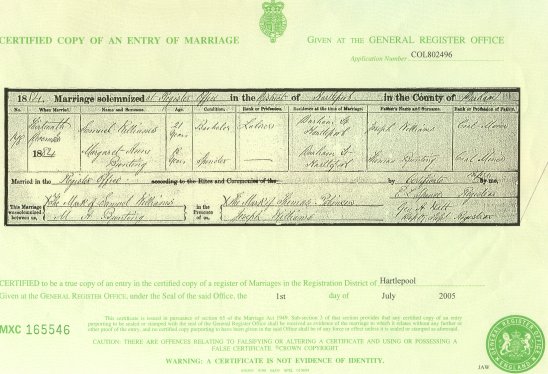 CERTIFIED COPY OF AN ENTRY OF MARRIAGE
GIVEN AT THE GENERAL REGISTER OFFICE
Application Number COL802496
1884. Marriage solemnized at Register Office in the District of Hartlepool in the County of Durham
No. When Married. Name and Surname. Age. Condition. Rank or Profession. Residence at the time of Marriage. Father's Name and Surname. Rank or Profession of Father.
1884
Samuel Williams 21 Years Bachelor Labourer Durham St Hartlepool Joseph Williams Coal Miner
Margaret Bunting 18 Years Spinster Durham St Hartlepool Bunting Coal Miner
Married in the Register Office according to the Rites and Ceremonies of the by Certificate by me,
This Marriage was solemnized between us,
X The Mark of Samuel Williams
M. A. Bunting
in the Presence of us,
X The Mark of
Joseph Williams
Registrar
Geo. Dep'y Sup't Registrar
CERTIFIED to be a true copy of an entry in the certified copy of a register of Marriages in the Registration District of Hartlepool
Given at the GENERAL REGISTER OFFICE, under the Seal of the said Office, the 1st day of July 2005
MXC 165546
This certificate is issued in pursuance of section 65 of the Marriage Act 1949. Sub-section 3 of that section provides that any certified copy of an entry
purporting to be sealed or stamped with the seal of the General Register Office shall be received as evidence of the marriage to which it relates without any further or
other proof of the entry, and no certified copy purporting to have been given in the said Office shall be of any force or effect unless it is sealed or stamped as aforesaid.
CAUTION: THERE ARE OFFENCES RELATING TO FALSIFYING OR ALTERING A CERTIFICATE AND USING OR POSSESSING A
FALSE CERTIFICATE ©CROWN COPYRIGHT
WARNING: A CERTIFICATE IS NOT EVIDENCE OF IDENTITY.
GENERAL REGISTER OFFICE
ENGLAND
JAW